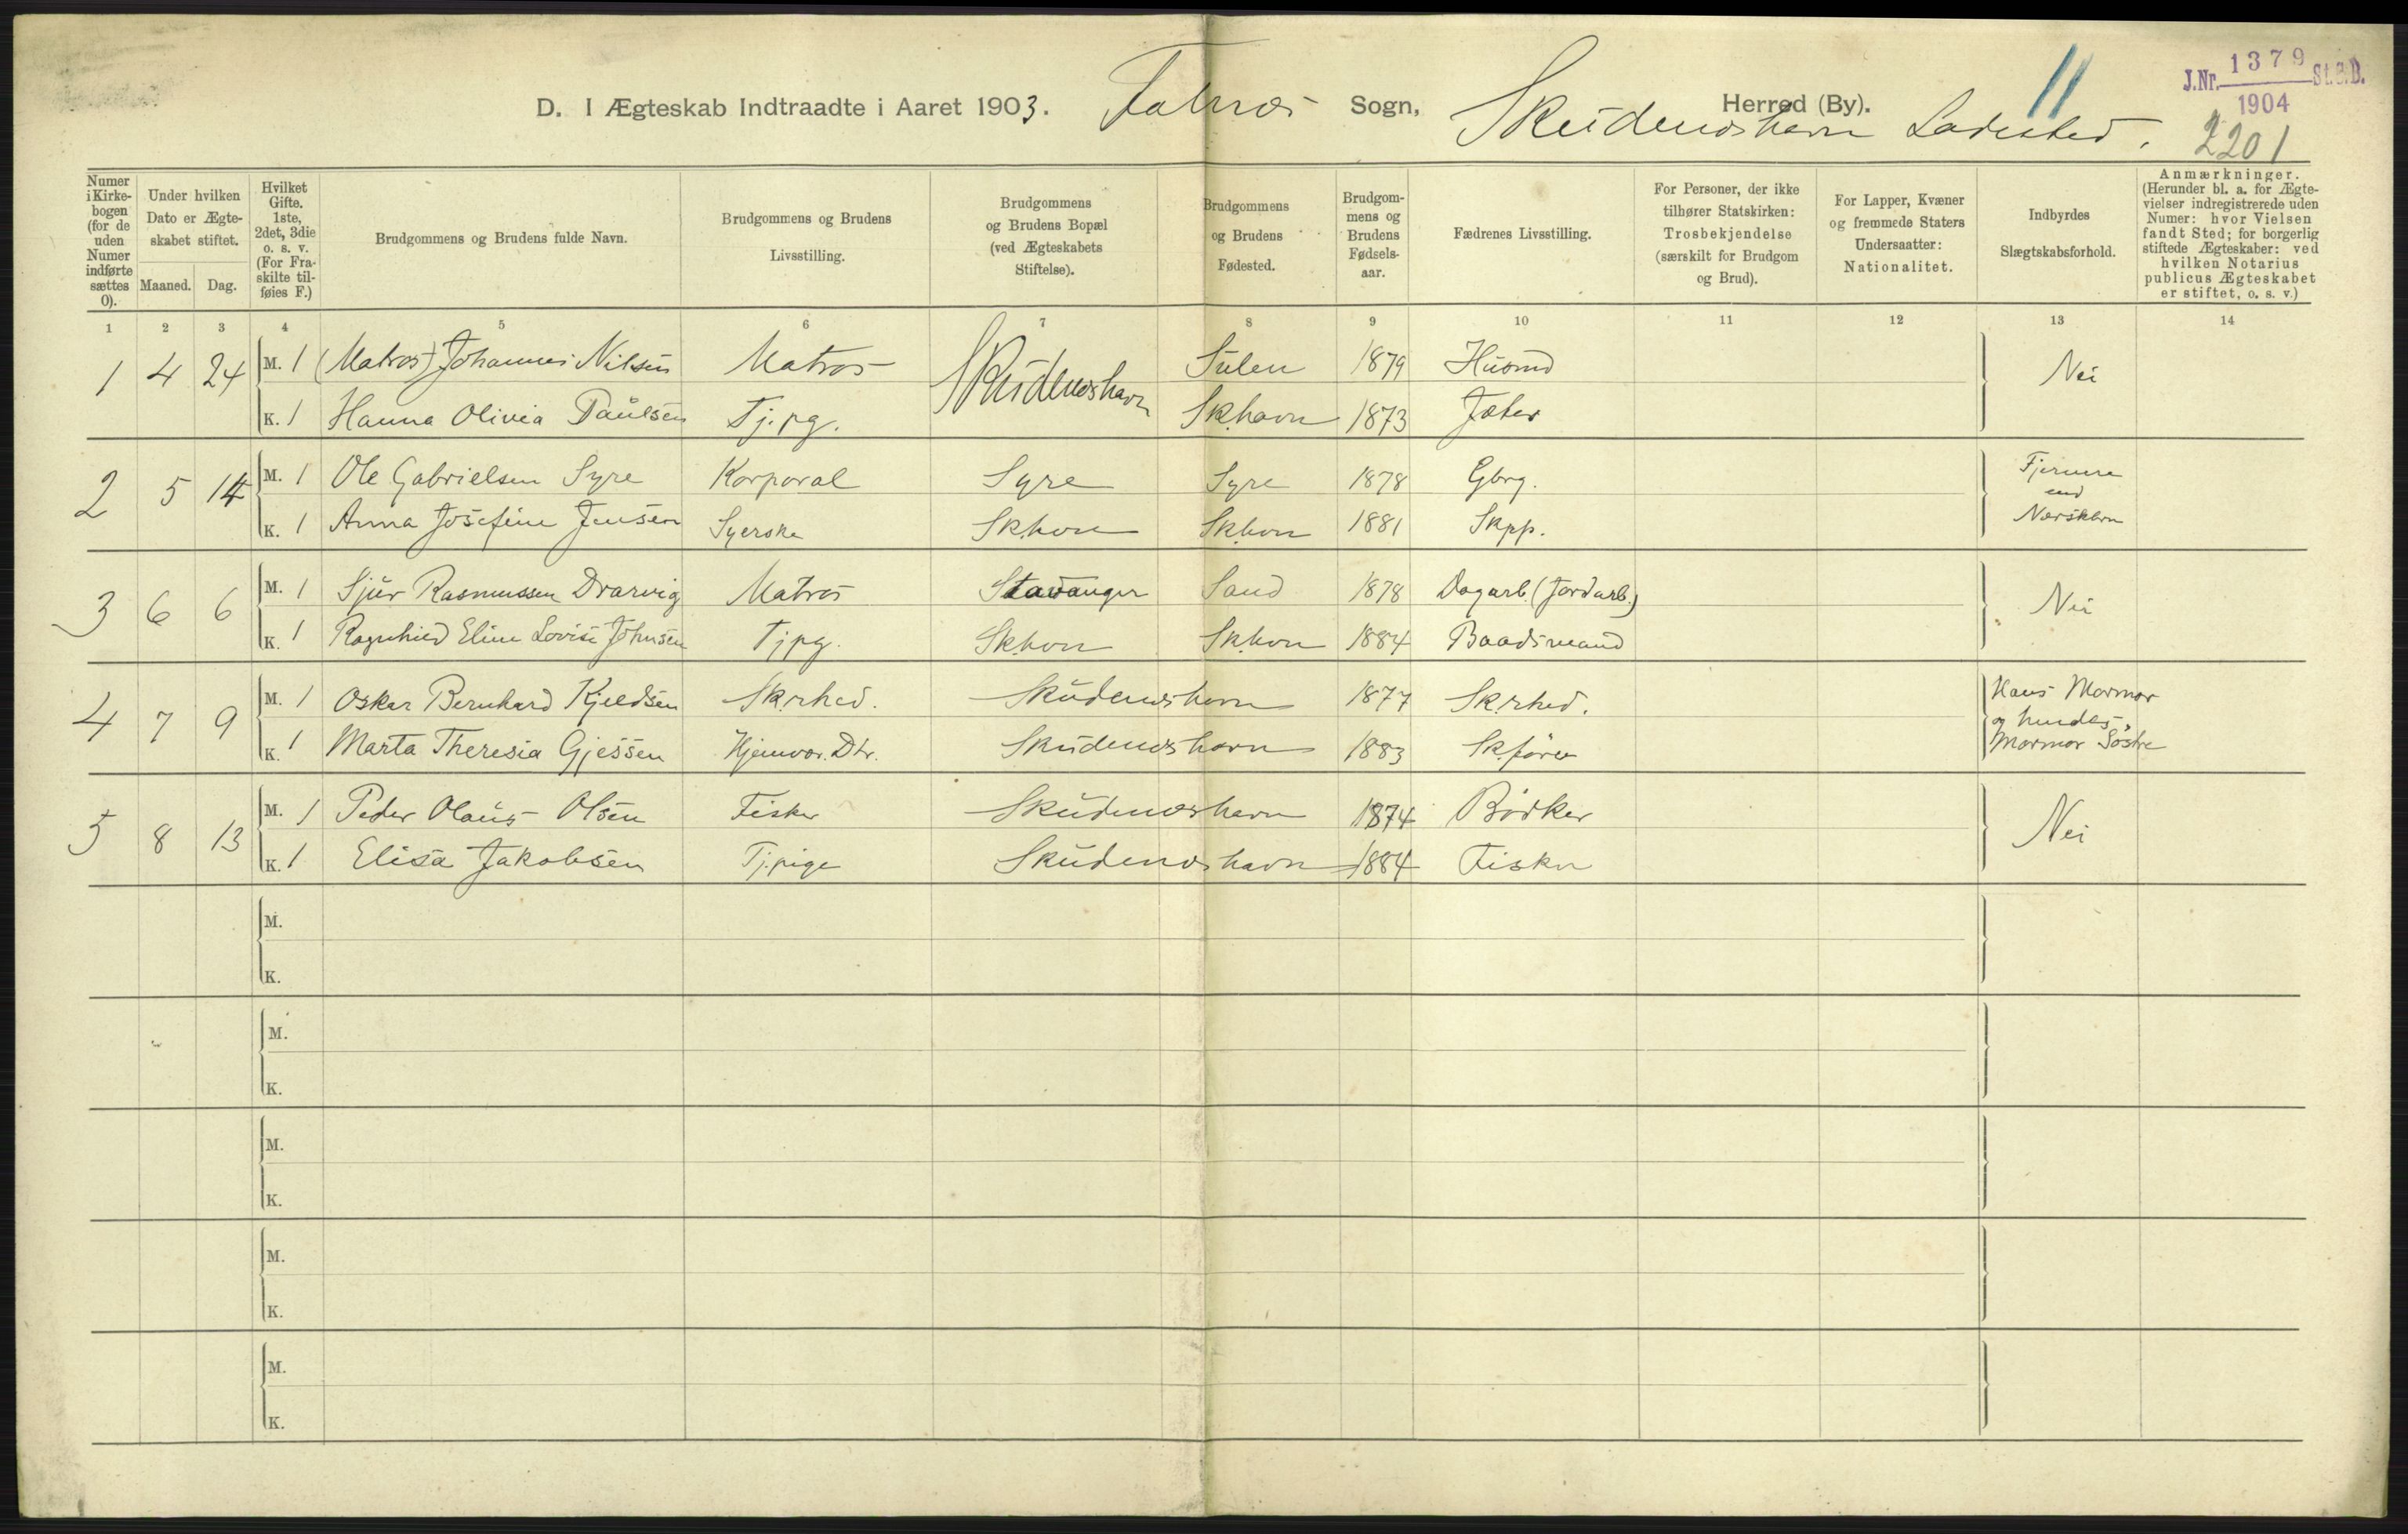 D. I Ægteskab Indtraadte i Aaret 1903. Falnæs Sogn, Skudeneshavn Ladested. Herred (By).
11
J.Nr. 1379 St.C.B.
1904
2201
Numer i Kirkebogen (for de uden Numer indførte sættes 0).
Under hvilken Dato er Ægteskabet stiftet.
Maaned. Dag.
Hvilket Gifte. 1ste, 2det, 3die o. s. v. (For Fraskilte tilføies F.)
Brudgommens og Brudens fulde Navn.
Brudgommens og Brudens Livsstilling.
Brudgommens og Brudens Bopæl (ved Ægteskabets Stiftelse).
Brudgommens og Brudens Fødested.
Brudgommens og Brudens Fødselsaar.
Fædrenes Livsstilling.
For Personer, der ikke tilhører Statskirken: Trosbekjendelse (særskilt for Brudgom og Brud).
For Lapper, Kvæner og fremmede Staters Undersaatter: Nationalitet.
Indbyrdes Slægtskabsforhold.
Anmærkninger. (Herunder bl. a. for Ægtevielser indregistrerede uden Numer: hvor Vielsen fandt Sted; for borgerlig stiftede Ægteskaber: ved hvilken Notarius publicus Ægteskabet er stiftet, o. s. v.)
1 2 3 4 5 6 7 8 9 10 11 12 13 14
1 4 24 M. 1 (Matros) Johannes Nilsen Matros Skudeneshavn Sulen 1879 Husmd Nei
K. 1 Hanna Olivia Paulsen Tj.pg. Skhavn 1873
2 5 14 M. 1 Ole Gabrielsen Syre Korporal Syre Syre 1878 Gbrg. Fjernere end Nærskbrn
K. 1 Anna Josefine Jensen Syerske Skhvn Skhvn 1881 Skpp.
3 6 6 M. 1 Sjur Rasmussen Drarvig Matros Stavanger Sand 1878 Dagarb. (Jordarb.) Nei
K. 1 Ragnhild Eline Lovise Johnsen Tjpg. Skhvn Skhvn 1884 Baadsmand
4 7 9 M. 1 Oskar Bernhard Kjeldsen Sk.rhed. Skudeneshavn 1877 Sk.rhed. Hans Mormor og hendes Mormor Søstre
K. 1 Marta Theresia Gjessen Hjemvær. Dtr. Skudeneshavn 1883 Skfører
5 8 13 M. 1 Peder Olaus Olsen Fisker Skudeneshavn 1874 Bødker Nei
K. 1 Elisa Jakobsen Tj.pige Skudeneshavn 1884 Fisker
M.
K.
M.
K.
M.
K.
M.
K.
M.
K.